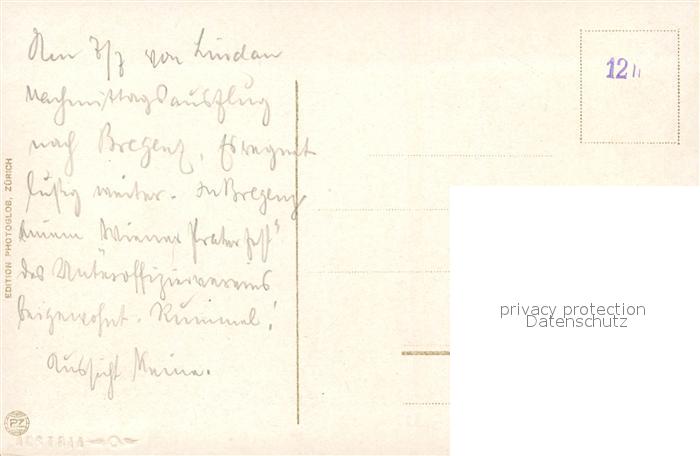 Den 7/7 von Lindau
Nachmittagsausflug
nach Bregenz. Es regnet
lustig weiter. In Bregenz
einem Wiener Praterfest
des Unteroffiziervereins
beigewohnt. Rummel!
Aussicht Keine.
EDITION PHOTOGLOB, ZÜRICH
PZ
12
privacy protection
Datenschutz